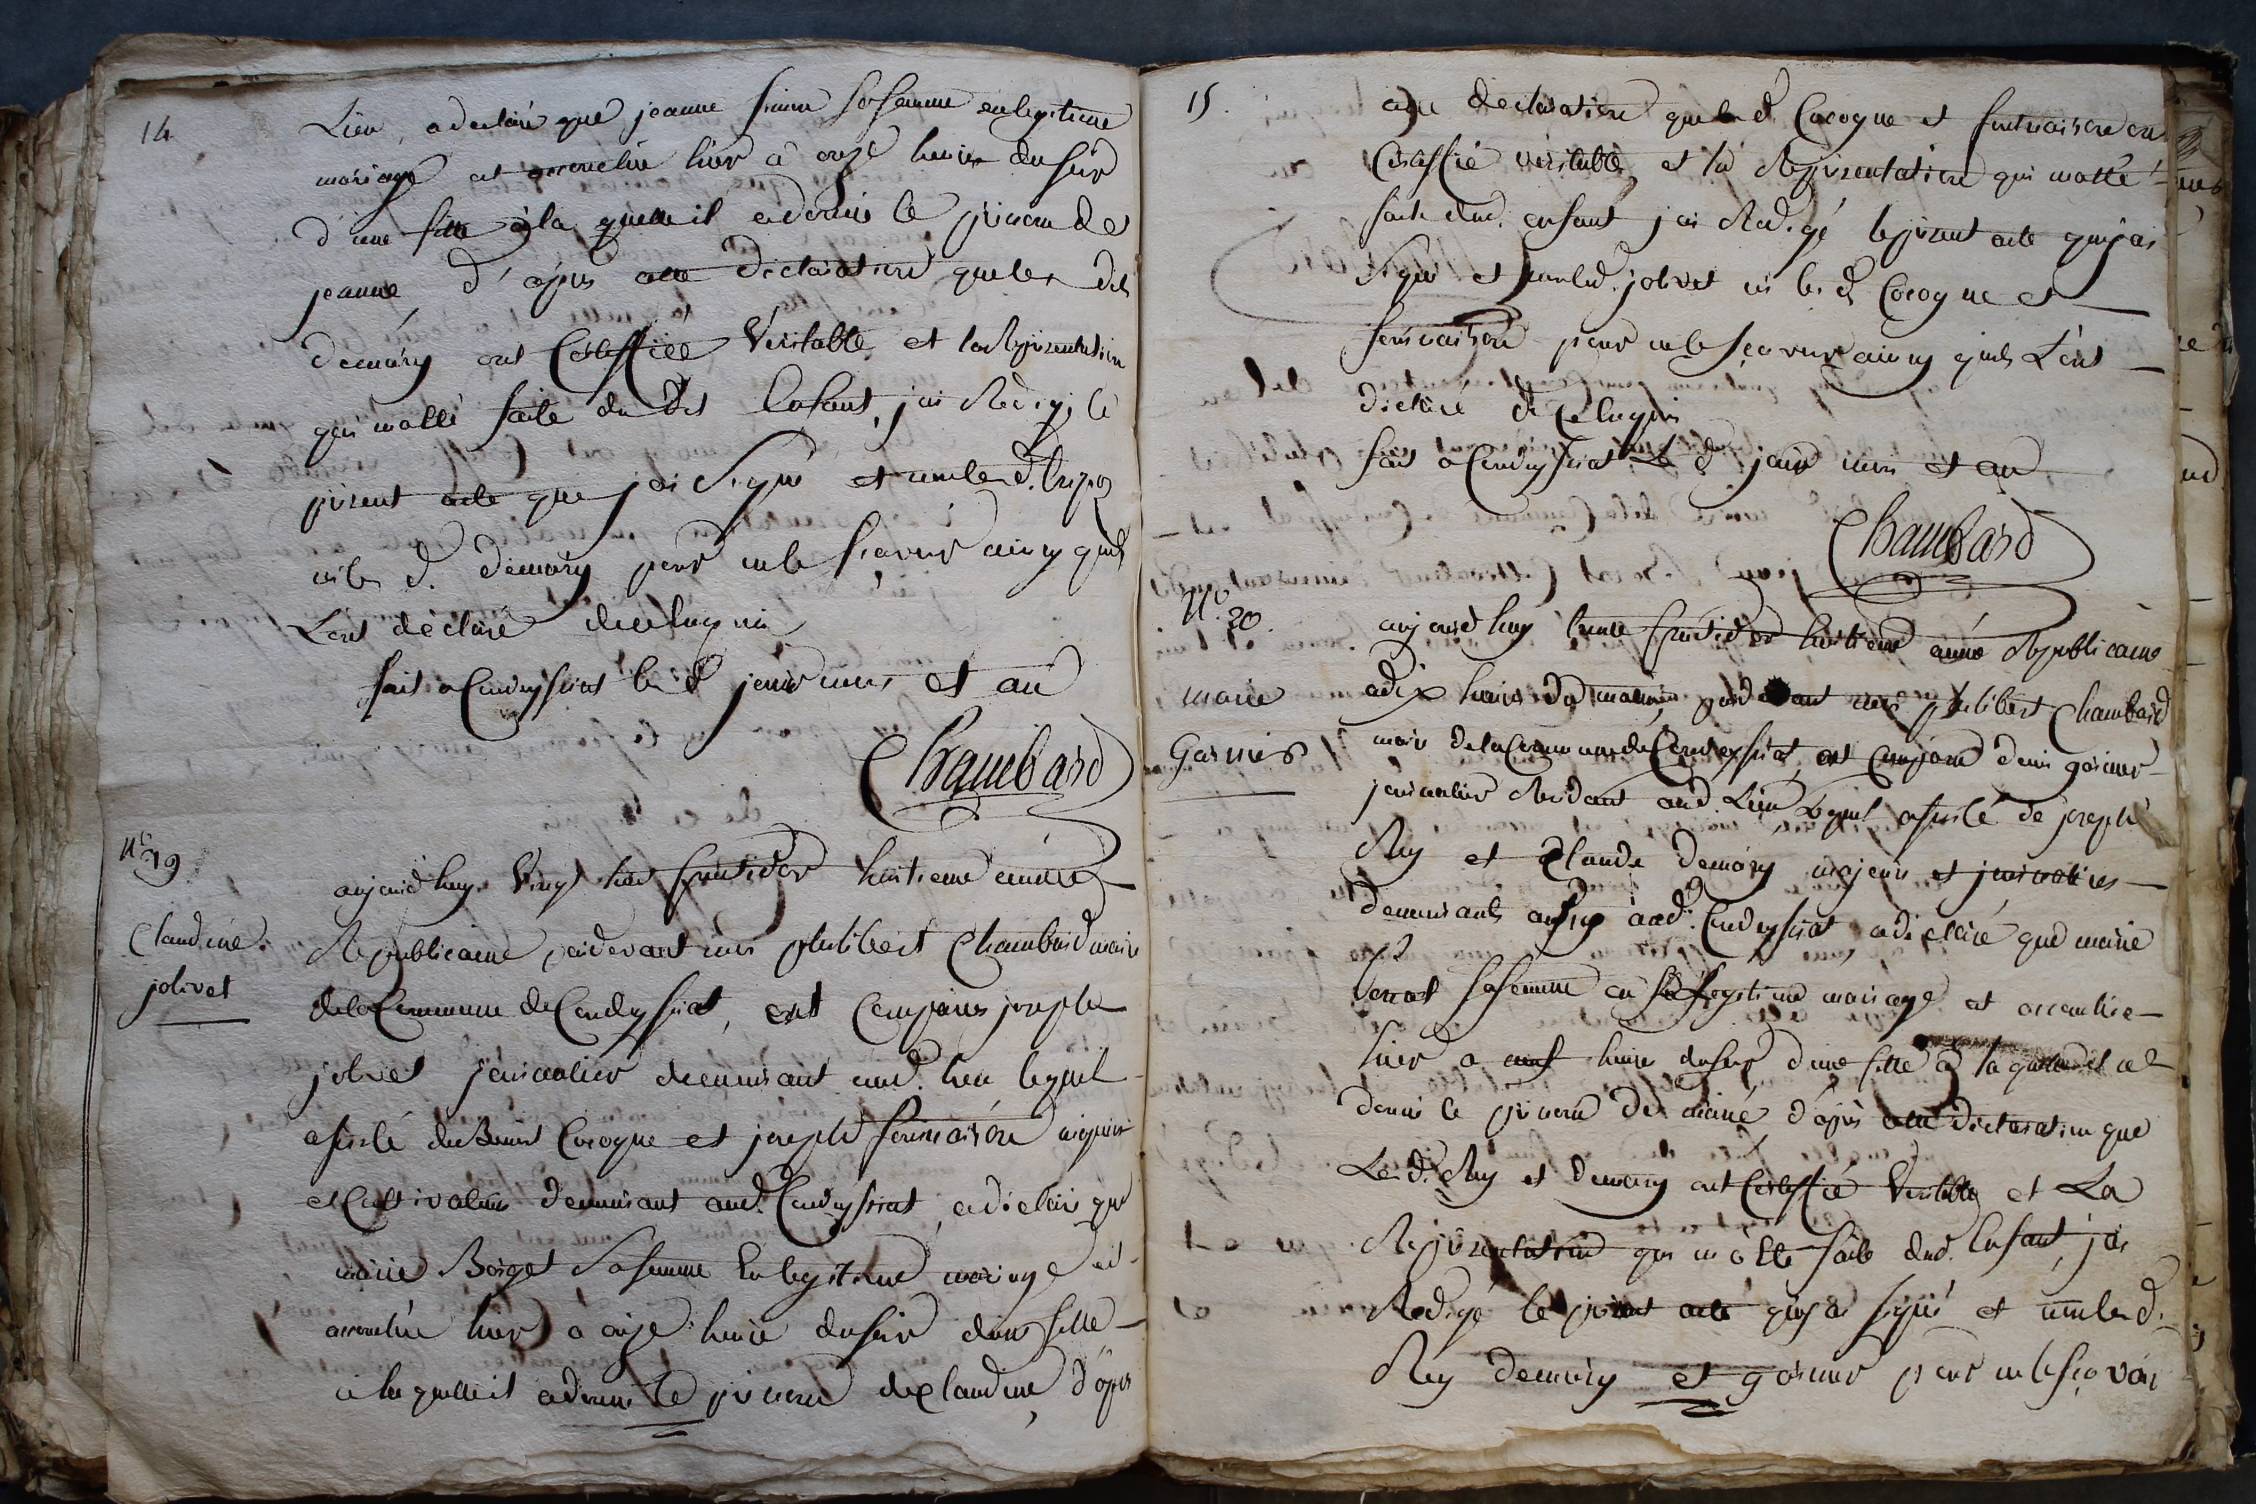 14
Lieu, a declaré que jeanne sa femme en legitime
mariage est accouchée hier à onze heures du soir
d'une fille à la quelle il a donné le prenom de
jeanne, d'après cette déclaration que les dits
demory ont Certiffiée Veritable et la Représentation
qui m'a été faite du dit Enfant, j'ai Redigé le
présent acte que j'ai Signé et non led.
ni le d. demory pour ne le sçavoir ainsy quils
L'ont déclaré de ce Enquis
fait a Condeyssiat les d. jour mois et an
Chambard
No. 19
Claudine
jolivet
aujourd'huy Vingt huit fructidor huitieme année
Republicaine, pardevant moi philibert Chambard maire
de la Commune de Condeyssiat, est Comparu joseph
jolivet journalier demeurant aud. lieu lequel
assisté de Benoit Cocogne et joseph fontaison majeurs
et Cultivateurs demeurant aud. Condeyssiat, a déclaré que
marie Borget Sa femme En legitime mariage est
accouchée hier à onze heures du soir d'une fille
à la quelle il a donné le prenom de Claudine d'après
15.
cette declaration que les d. Cocogne et fontaison ont
Certiffié véritable, et la Représentation qui m'a été
faite dud. enfant j'ai Redigé le présent acte que j'ai
Signé et non led. jolivet ni les d. Cocogne et
fontaison pour ne le sçavoir ainsy quils L'ont
déclaré de Ce Enquis
fait a Condeyssiat Les d. jour mois et an
Chambard
No. 20.
marie
Garnier
aujourd'huy trente fructidor huitieme année Republicaine
à dix heures du matin, pardevant moi philibert Chambard
maire de la Commune de Condeyssiat, est Comparu denis garnier
journalier Residant aud. Lieu, Lequel assisté de joseph
Rey et Claude demory majeurs et journaliers
demeurants aussy aud. Condeyssiat a déclaré que marie
Sa femme en legitime mariage est accouchée
hier a neuf heures du soir d'une fille à la quelle il a
donné le prenom de marie, d'après cette déclaration que
Les d. Rey et demory ont Certiffié Veritable, et La
Représentation qui m'a été faite dud. Enfant, j'ai
Redigé le présent acte que j'ai signé et non les d.
Rey demory et garnier pour ne le sçavoir